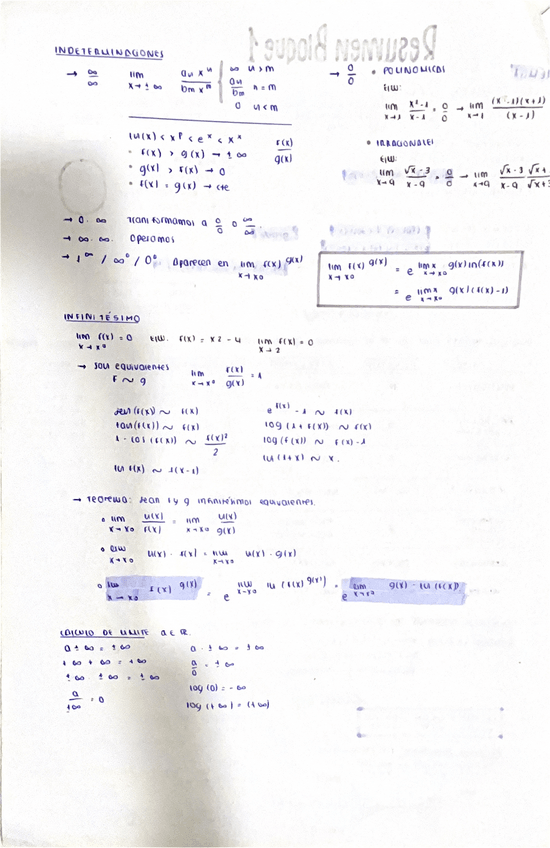 Resumen Bloque 1
INDETERMINACIONES
→ ∞/∞ lim x→±∞ an x^n / bm x^m { ∞ n>m
an/bm n=m
0 n<m
ln(x) < x^p < e^x < x^x f(x)/g(x)
• f(x) > g(x) → ±∞
• g(x) > f(x) → 0
• f(x) = g(x) → cte
→ 0/0 • POLINOMICAS
lim x→1 x²-1/x-1 = 0/0 → lim x→1 (x-1)(x+1)/(x-1)
• IRRACIONALES
lim x→9 √x-3/x-9 = 0/0 → lim x→9 √x-3/x-9 √x+/√x+3
→ 0·∞ Transformamos a 0/0 o ∞/∞
→ ∞-∞. Operamos
→ 1^∞ / ∞^0 / 0^0 Aparecen en lim x→x0 f(x)^g(x)
lim x→x0 f(x)^g(x) = e^lim x→x0 g(x) ln(f(x))
= e^lim x→x0 g(x)(f(x)-1)
INFINITÉSIMO
lim x→x0 f(x)=0 f(x) = x2-4 lim x→2 f(x)=0
→ son equivalentes
f ~ g lim x→x0 f(x)/g(x) = 1
sen(f(x)) ~ f(x) e^f(x) - 1 ~ f(x)
tan(f(x)) ~ f(x) log(1+f(x)) ~ f(x)
1-cos(f(x)) ~ f(x)²/2 log(f(x)) ~ f(x)-1
ln(1+x) ~ x.
ln f(x) ~ f(x-1)
→ Teorema: sean f y g infinitésimos equivalentes.
• lim x→x0 u(x)/f(x) = lim x→x0 u(x)/g(x)
• lim x→x0 u(x)·f(x) = lim x→x0 u(x)·g(x)
• lim x→x0 f(x)^g(x) = e^lim x→x0 ln(f(x)^g(x)) = e^lim x→x0 g(x)·ln(f(x))
CÁLCULO DE LÍMITE a∈R.
a±∞ = ±∞ a·±∞ = ±∞
+∞+∞ = +∞ a/0 = ±∞
±∞·±∞ = ±∞ log(0) = -∞
a/±∞ = 0 log(+∞) = (+∞)